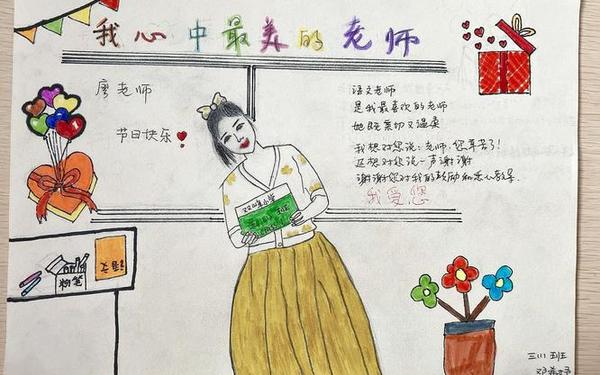 我心中最美的老师
廖老师
节日快乐
语文老师
是我最喜欢的老师
她既亲切又温柔
我想对您说：老师，您辛苦了！
还想对您说一声谢谢
谢谢您对我的鼓励和悉心教导
我爱您
粉笔
三(1)班